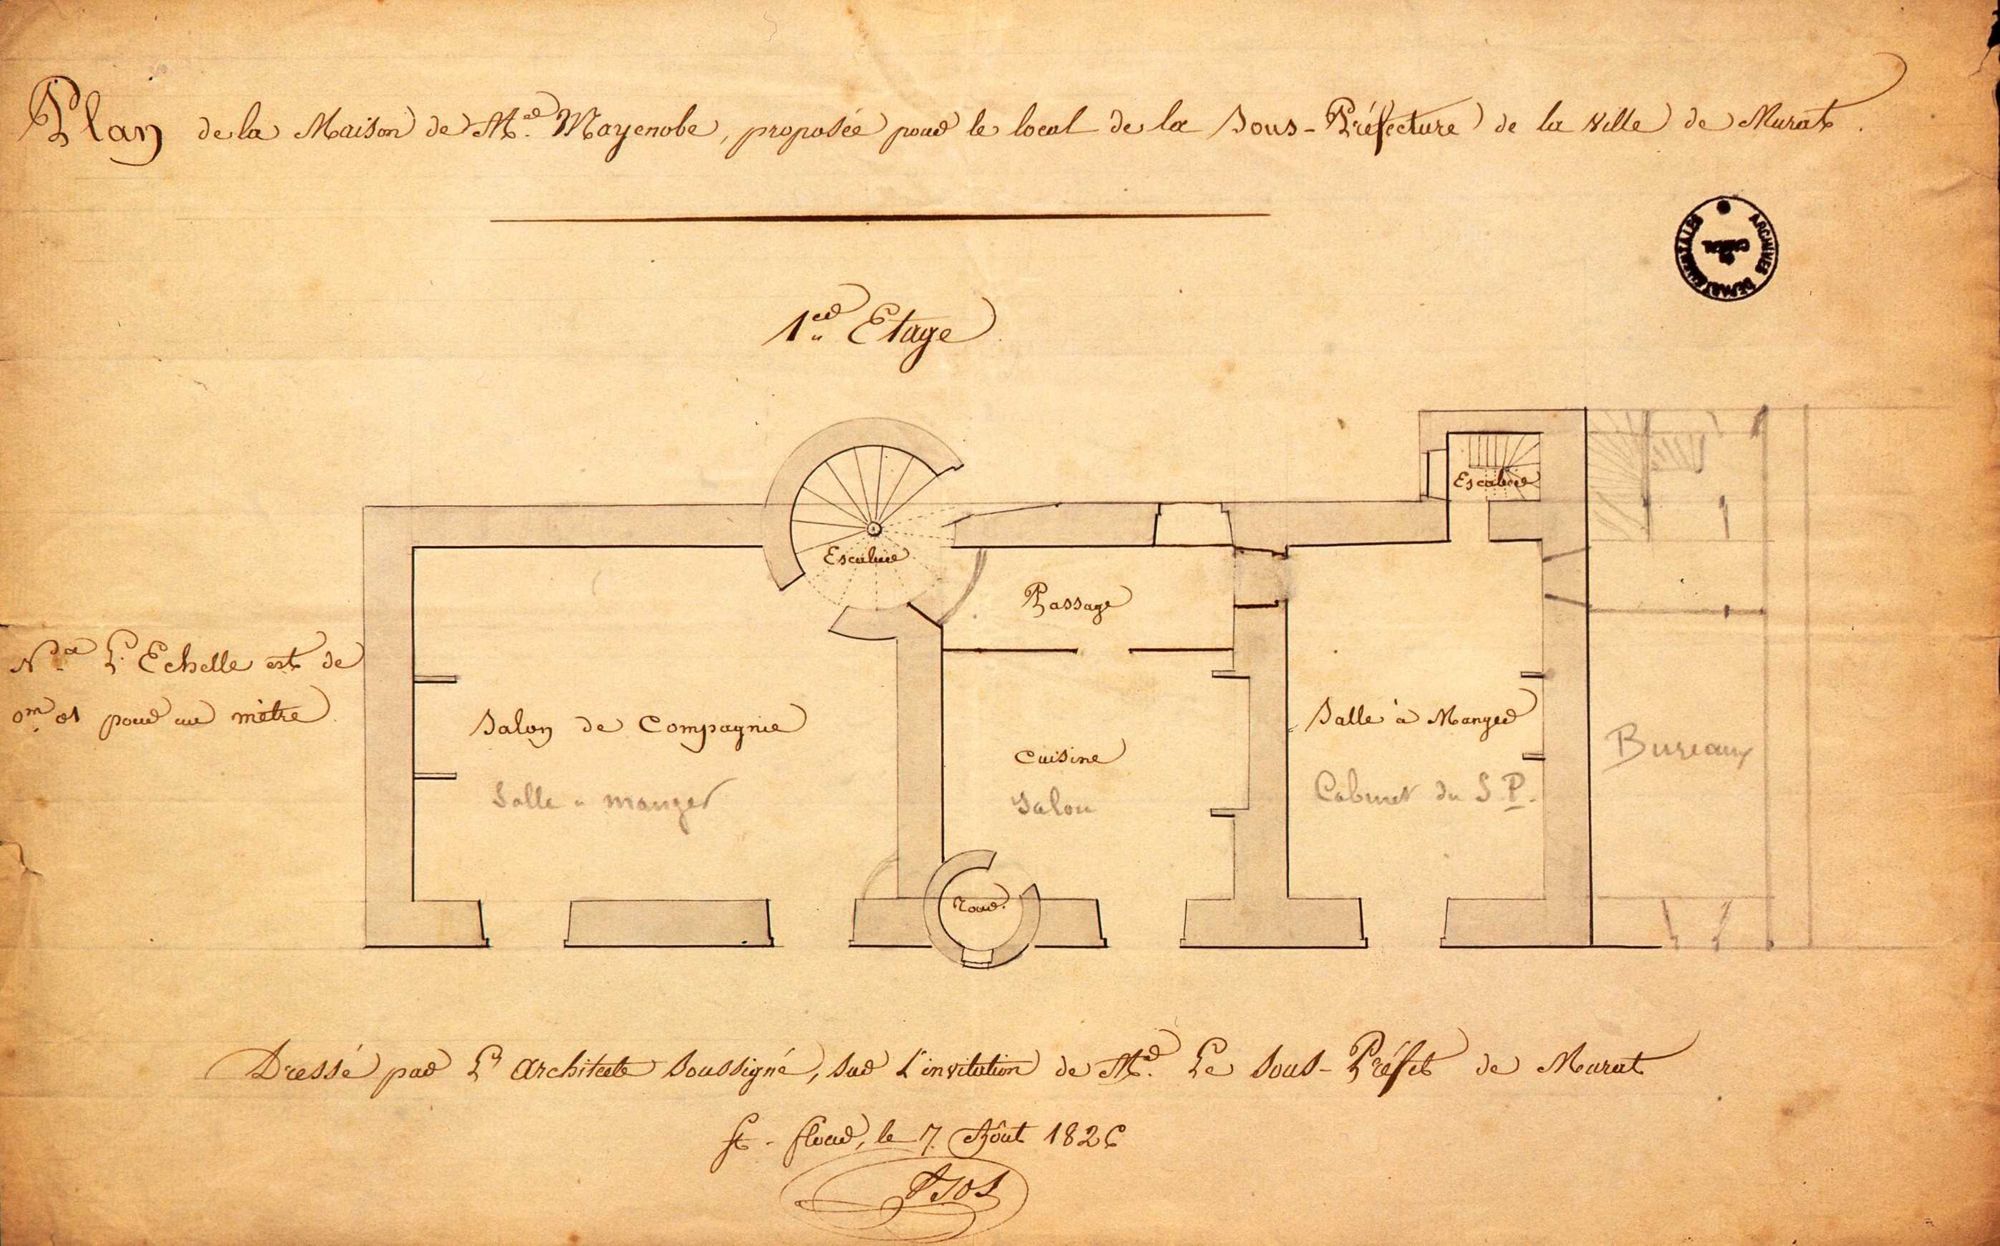 Plan de la Maison de Mr. Mayenobe, proposée pour le local de la Sous-Préfecture de la ville de Murat.
ARCHIVES DEPARTEMENTALES
CANTAL
1er Etage
Escalier
Escalier
Passage
Nta L'Echelle est de
0m 01 pour un mètre.
Salon de Compagnie
Salle à Manger
Cuisine
Bureaux
Salle a manger
Salon
Cabinet du S. P.
Tour.
Dressé par L'architecte soussigné, sur L'invitation de Mr. Le Sous-Préfet de Murat
St-flour, le 7 Août 1826